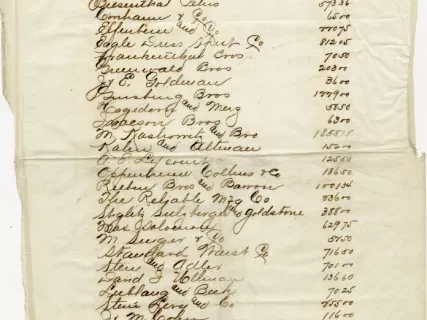 Biesenthal Sales 57336
Bonhaim & Co 6500
Effenbein and Co 22075
Eagle Dress Skirt Co 81205
Frankentiqual Bros 7050
Greenwald Bros 20300
J E. Goldman 3600
Ginsburg Bros 122900
Hagedorn and Merz 5550
Isaacson Bros 6300
M. Kashowitz and Bro 185515
Kahn and Altman 15200
A E Lefcourt 12550
Oppenheim Collins & Co 18650
Rieben Bros and Barron 100134
The Reliable Mfg Co 23600
Stiglitz Sulzberger and Goldstone 38500
Max Solomon 62975
M. Singer & Co 5250
Standard Waist Co 71650
Stern and Adler 70100
David J Ullman 13660
Liebling and Beck 7025
Stein Levy and Co 25500
J M Cohn 11600